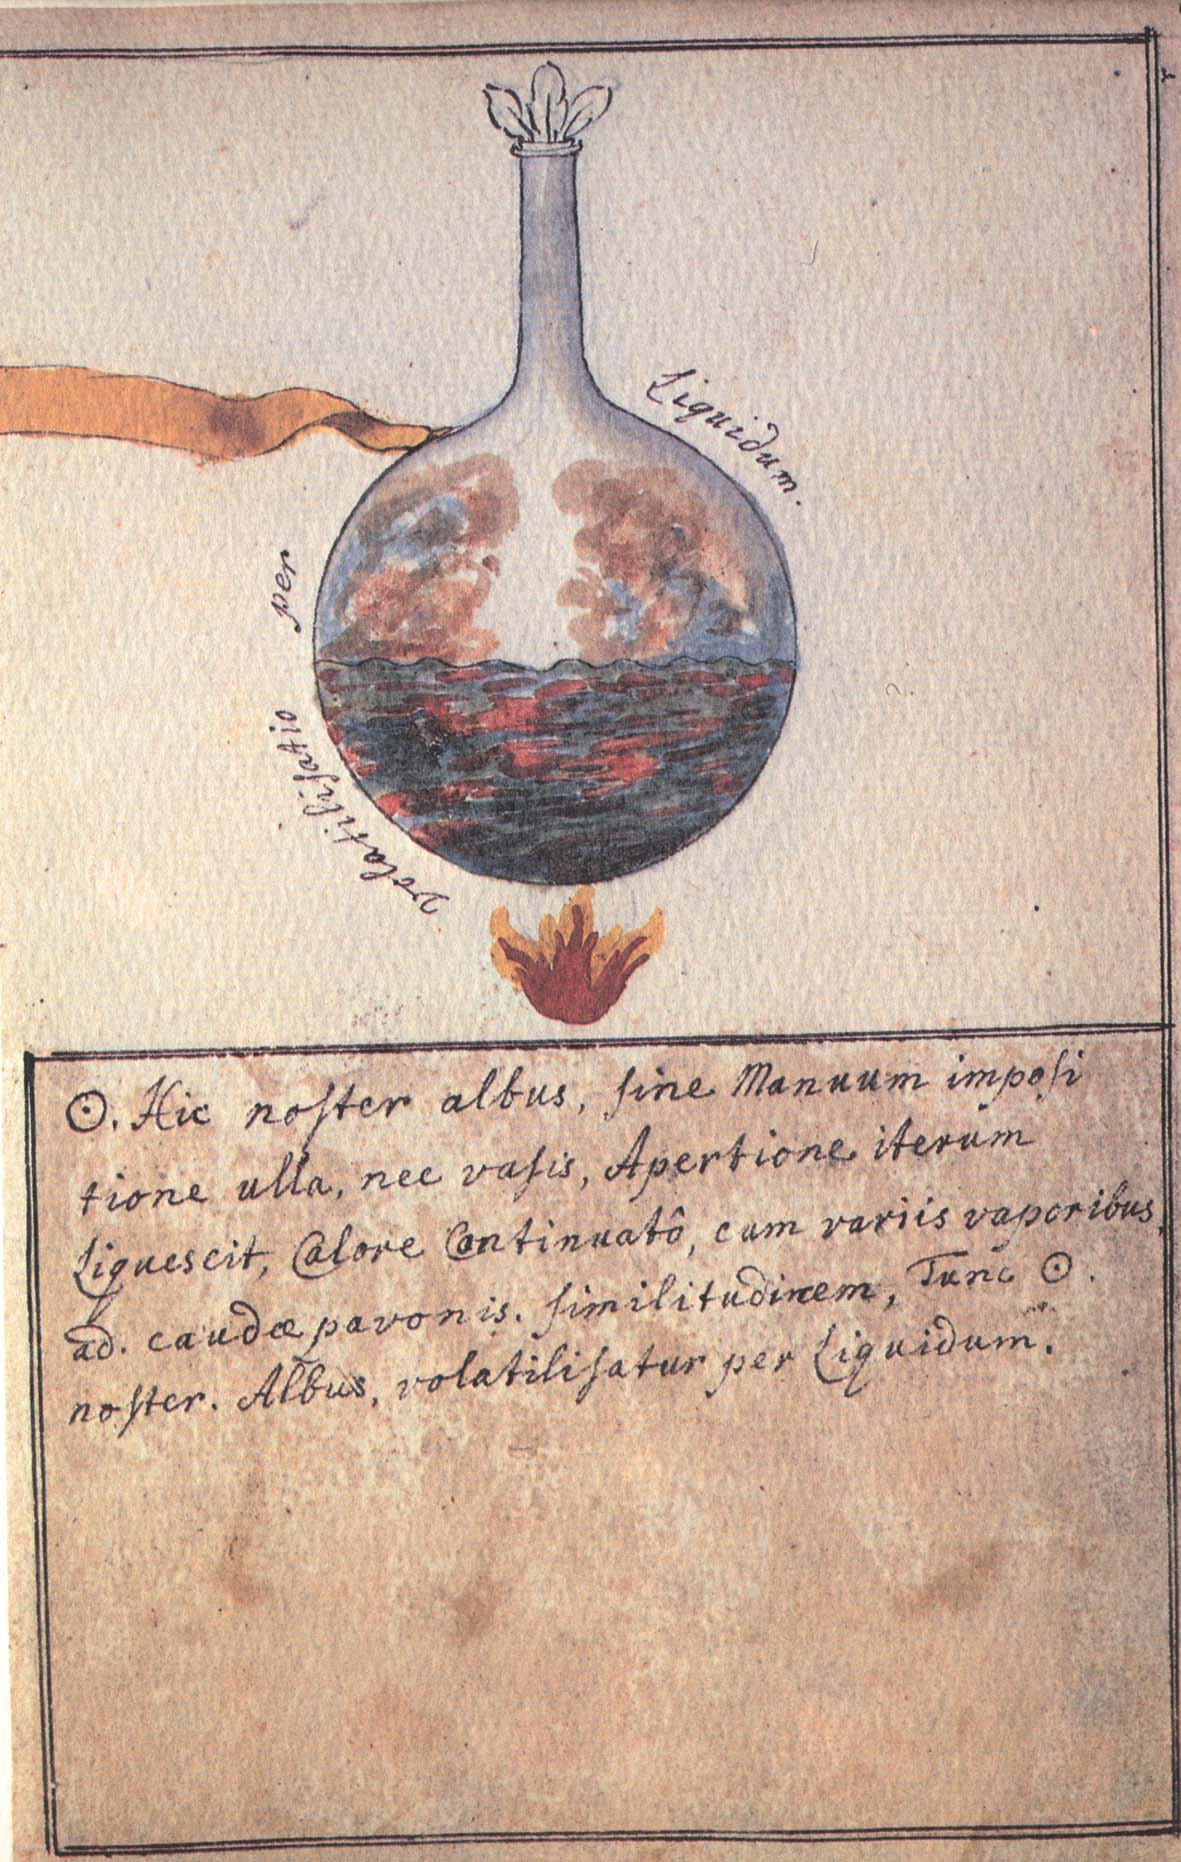 Liquidum.
volatiliſatio per
☉. Hic noſter albus, ſine Manuum impoſi
tione ulla, nec vaſis, Apertione iterum
Liquescit, Calore Continuatô, cum variis vaporibus,
ad. caudæ pavonis. ſimilitudinem, Tunc ☉.
noſter. Albus, volatiliſatur per Liquidum.